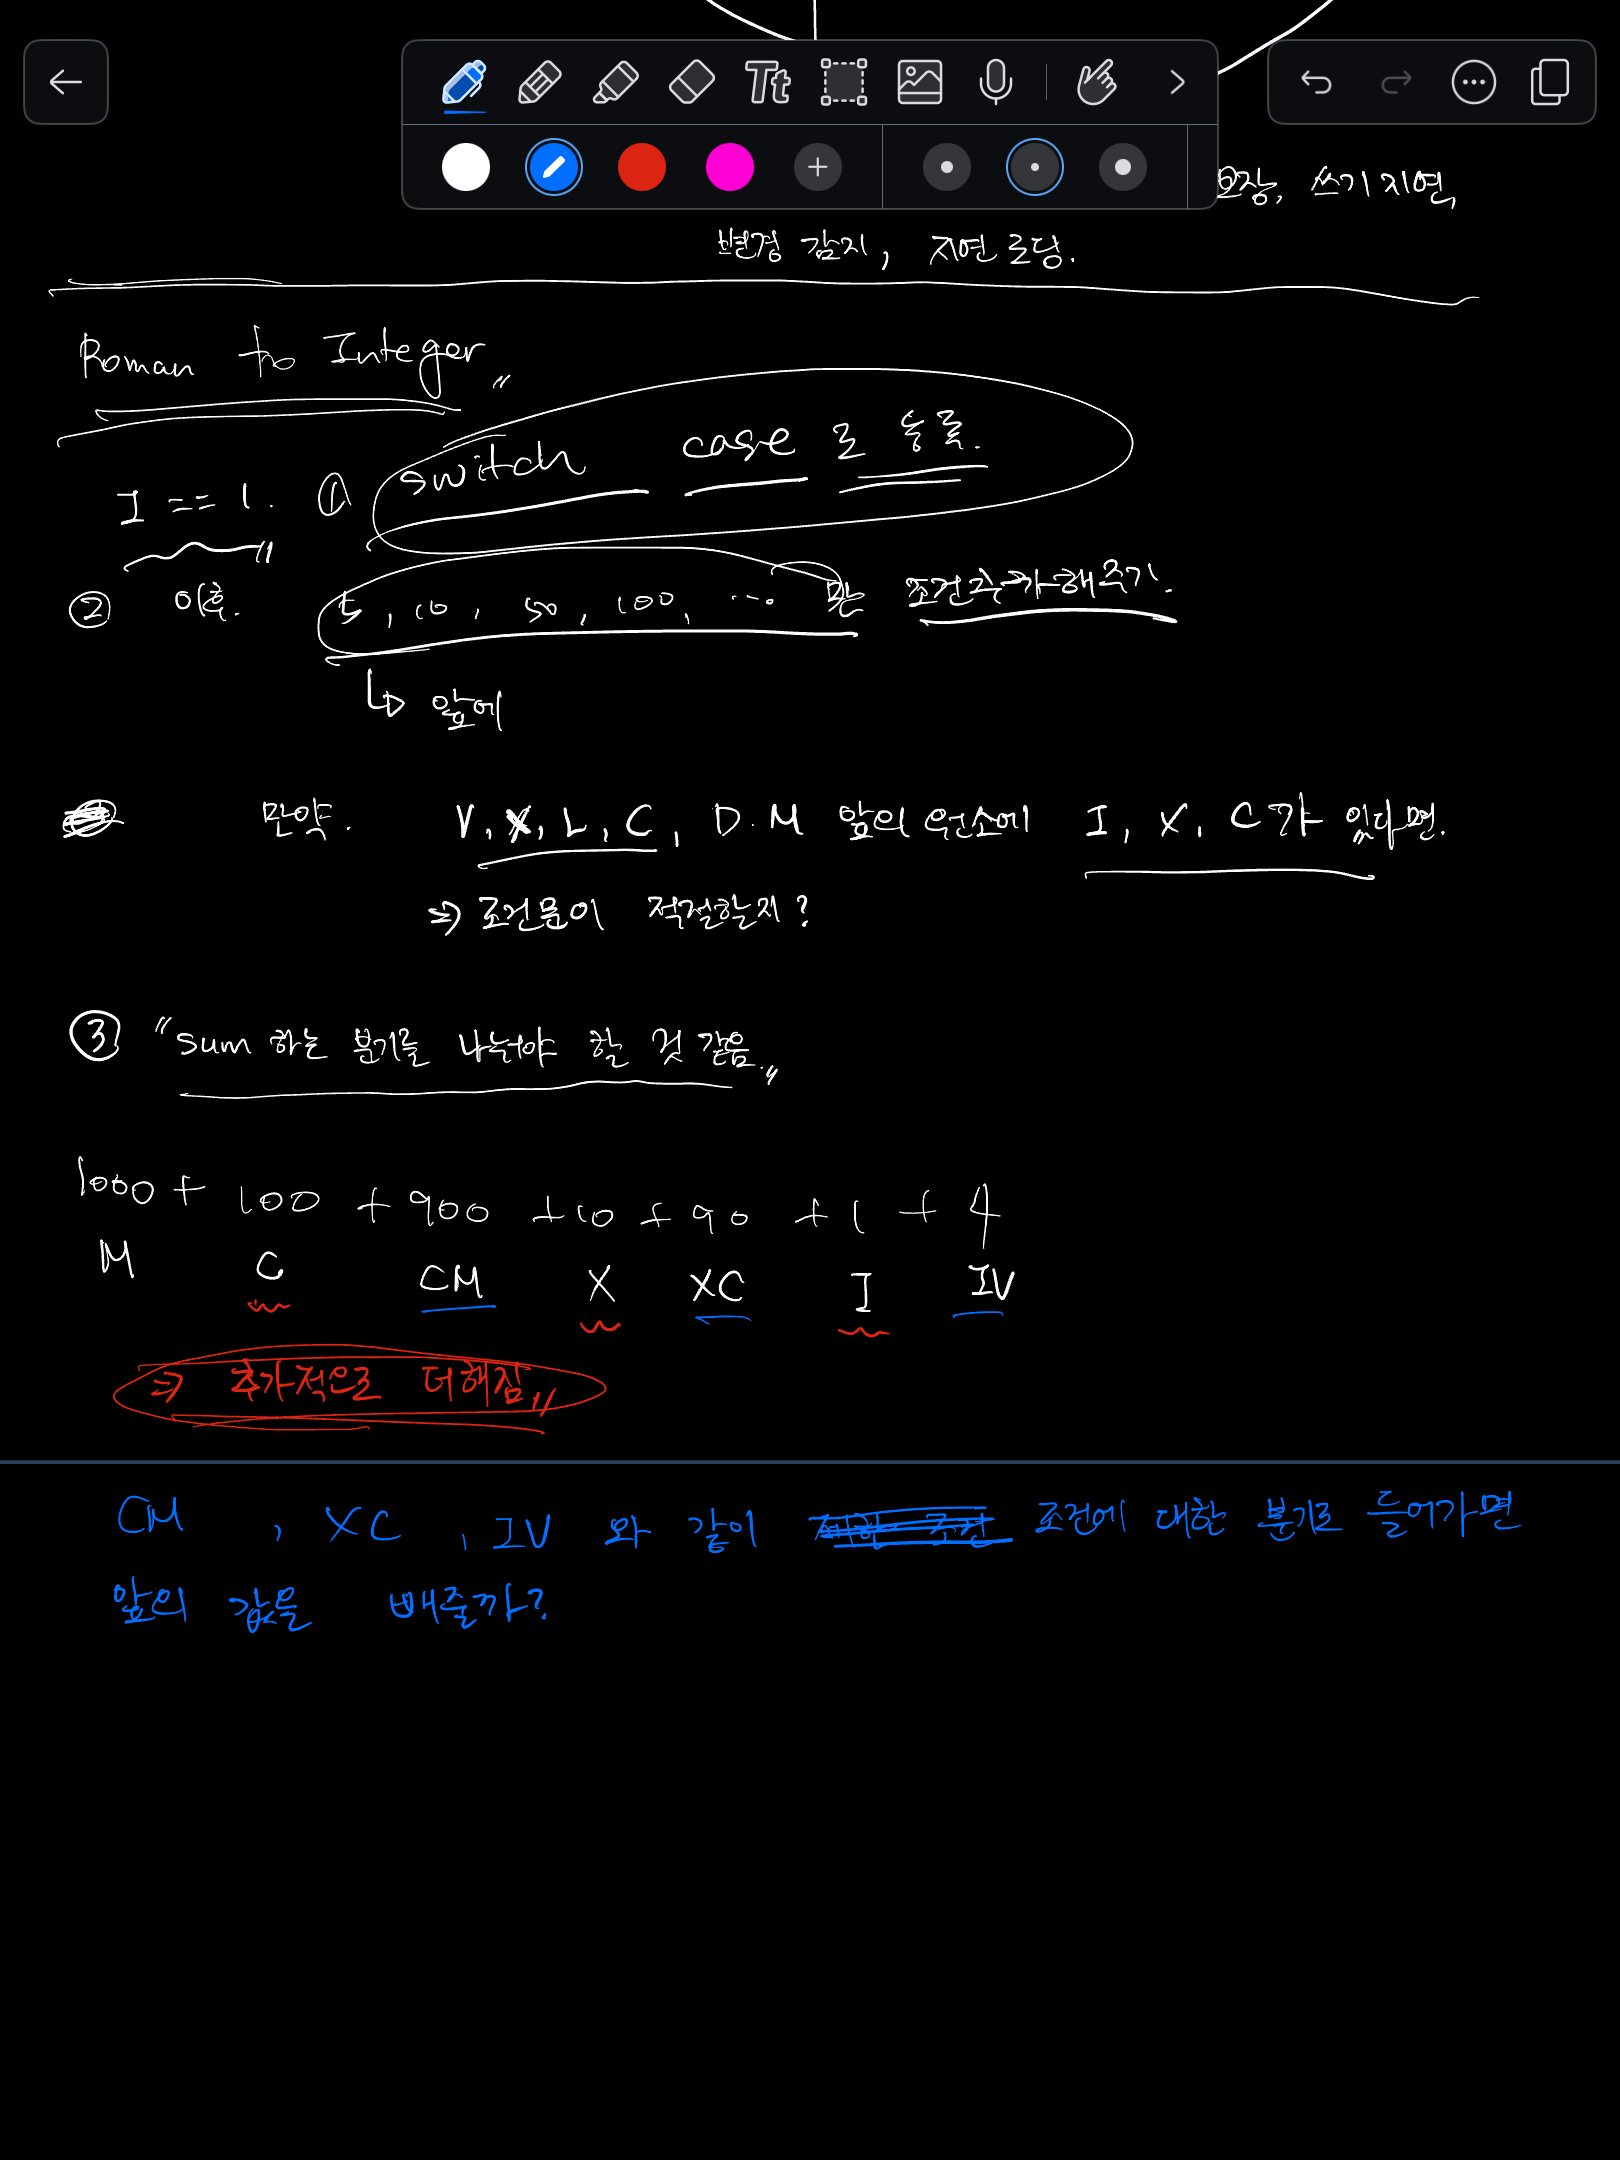 Tt
쓰기 지연,
변경 감지, 지연 로딩.
Roman to Integer "
I == 1. ① switch case 로 등록.
② 이후. 5, 10, 50, 100, ... 만 조건추가해주기.
↳ 앞에
만약. V, X, L, C, D. M 앞의 원소에 I, X, C가 있다면.
⇒ 조건문이 적절할지?
③ "Sum 하는 분기를 나눠야 할 것 같음."
1000 + 100 + 900 + 10 + 90 + 1 + 4
M C CM X XC I IV
⇒ 추가적으로 더해짐"
CM , XC , IV 와 같이 조건에 대한 분기로 들어가면
앞의 값을 빼줄까?